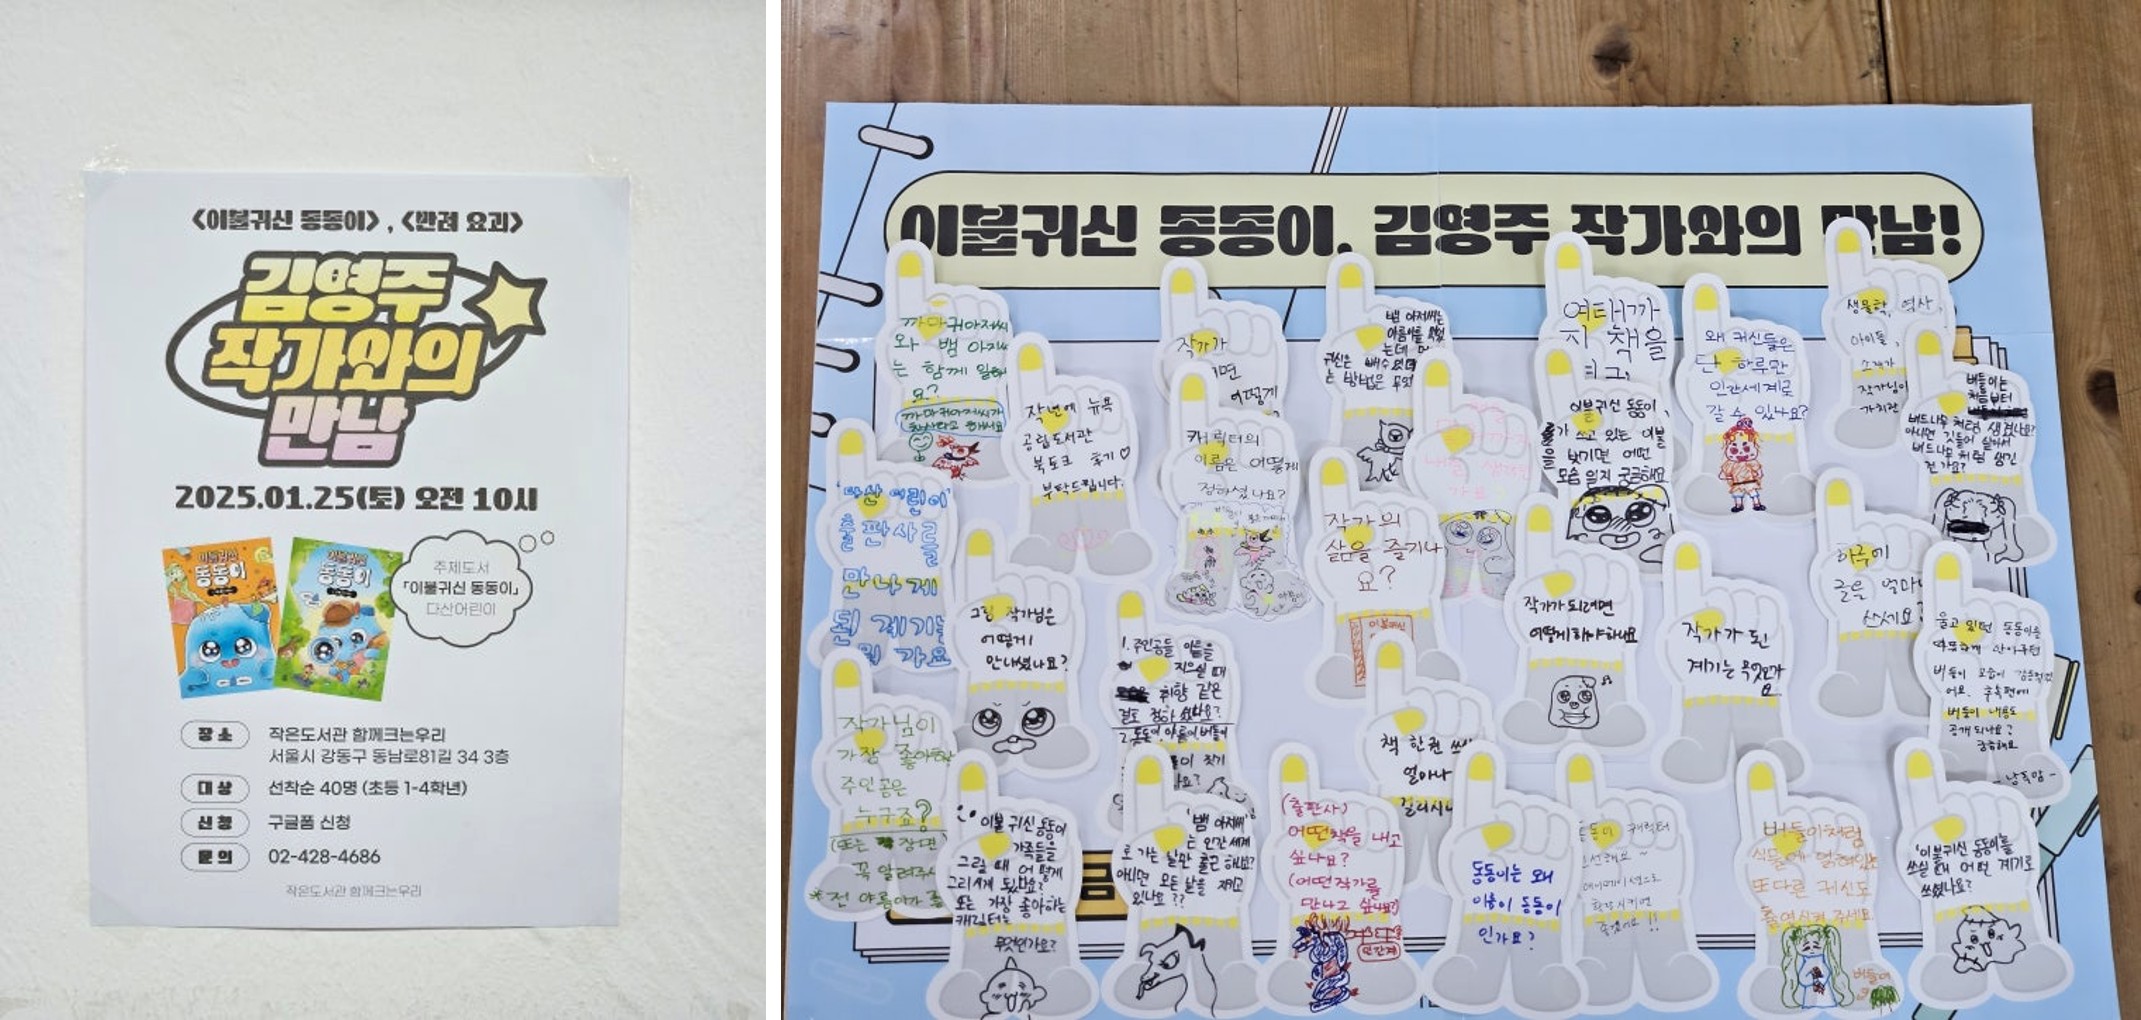 <이불귀신 동동이>, <반려 요괴>
김영주
작가와의
만남
2025.01.25(토) 오전 10시
이불귀신
동동이
이불귀신
동동이
주제도서
「이불귀신 동동이」
다산어린이
장소
작은도서관 함께크는우리
서울시 강동구 동남로81길 34 3층
대상
선착순 40명 (초등 1-4학년)
신청
구글폼 신청
문의
02-428-4686
작은도서관 함께크는우리
이불귀신 동동이, 김영주 작가와의 만남!
까마귀아저씨
와 뱀 아저씨
는 함께 일하
요?
까마귀아저씨가
작년에 뉴욕
공립도서관
북토크 후기♡
부탁드립니다.
작가가
어떻게
캐릭터의
이름은 어떻게
정하셨나요?
뱀 아저씨는
귀신은
는 방법은
여태까
지 책을
이불귀신 동동이,
가 쓰고 있는 이불
을 벗기면 어떤
모습 일지 궁금해요
왜 귀신들은
단 하루만
인간세계로
갈 수 있나요?
생물학, 역사,
아이돌,
작가님이
가치관
버들이는
처음부터
버드나무처럼 생겼나요?
아니면 깃들어 살아서
버드나무처럼 생긴
건가요?
'다산어린이'
출판사를
만나게
된 계기는
뭔가요
그림 작가님은
어떻게
만나셨나요?
작가의
삶을 즐기나
요?
이불귀신
1. 주인공들 이름을
지으실 때
취향 같은
걸로 정하셨나요?
2. 동동이 아들이 버들이
작가가 되려면
어떻게 해야하나요
작가가 된
계기는 무엇인가
요
하루에
글을 얼마나
쓰세요?
울고 있던 동동이를
따뜻하게 안아주던
버들이 모습이
어요. 후속편에
버들이 내용도
공개 되나요?
궁금해요
작가님이
가장 좋아하
주인공은
누구죠?
(또는 장면)
꼭 알려주
책 한권 쓰시
얼마나
걸리시나
이불 귀신 동동이
가족들을
그릴 때 어떻게
그리게 됐나요?
또는 가장 좋아하는
캐릭터는
무엇인가요?
'뱀 아저씨'
는 인간세계
로 가는 날만 출근 하나요?
아니면 모든 날을 재고
있나요??
(출판사)
어떤책을 내고
싶나요?
(어떤작가를
만나고 싶나요?)
동동이는 왜
이름이 동동이
인가요?
동동이 캐릭터
애니메이션으로
확장시키면
좋겠어요!!
버들이처럼
식물에 얽혀있는
또다른 귀신도
출연시켜 주세요.
버들이
'이불귀신 동동이'를
쓰실 때 어떤 계기로
쓰셨나요?